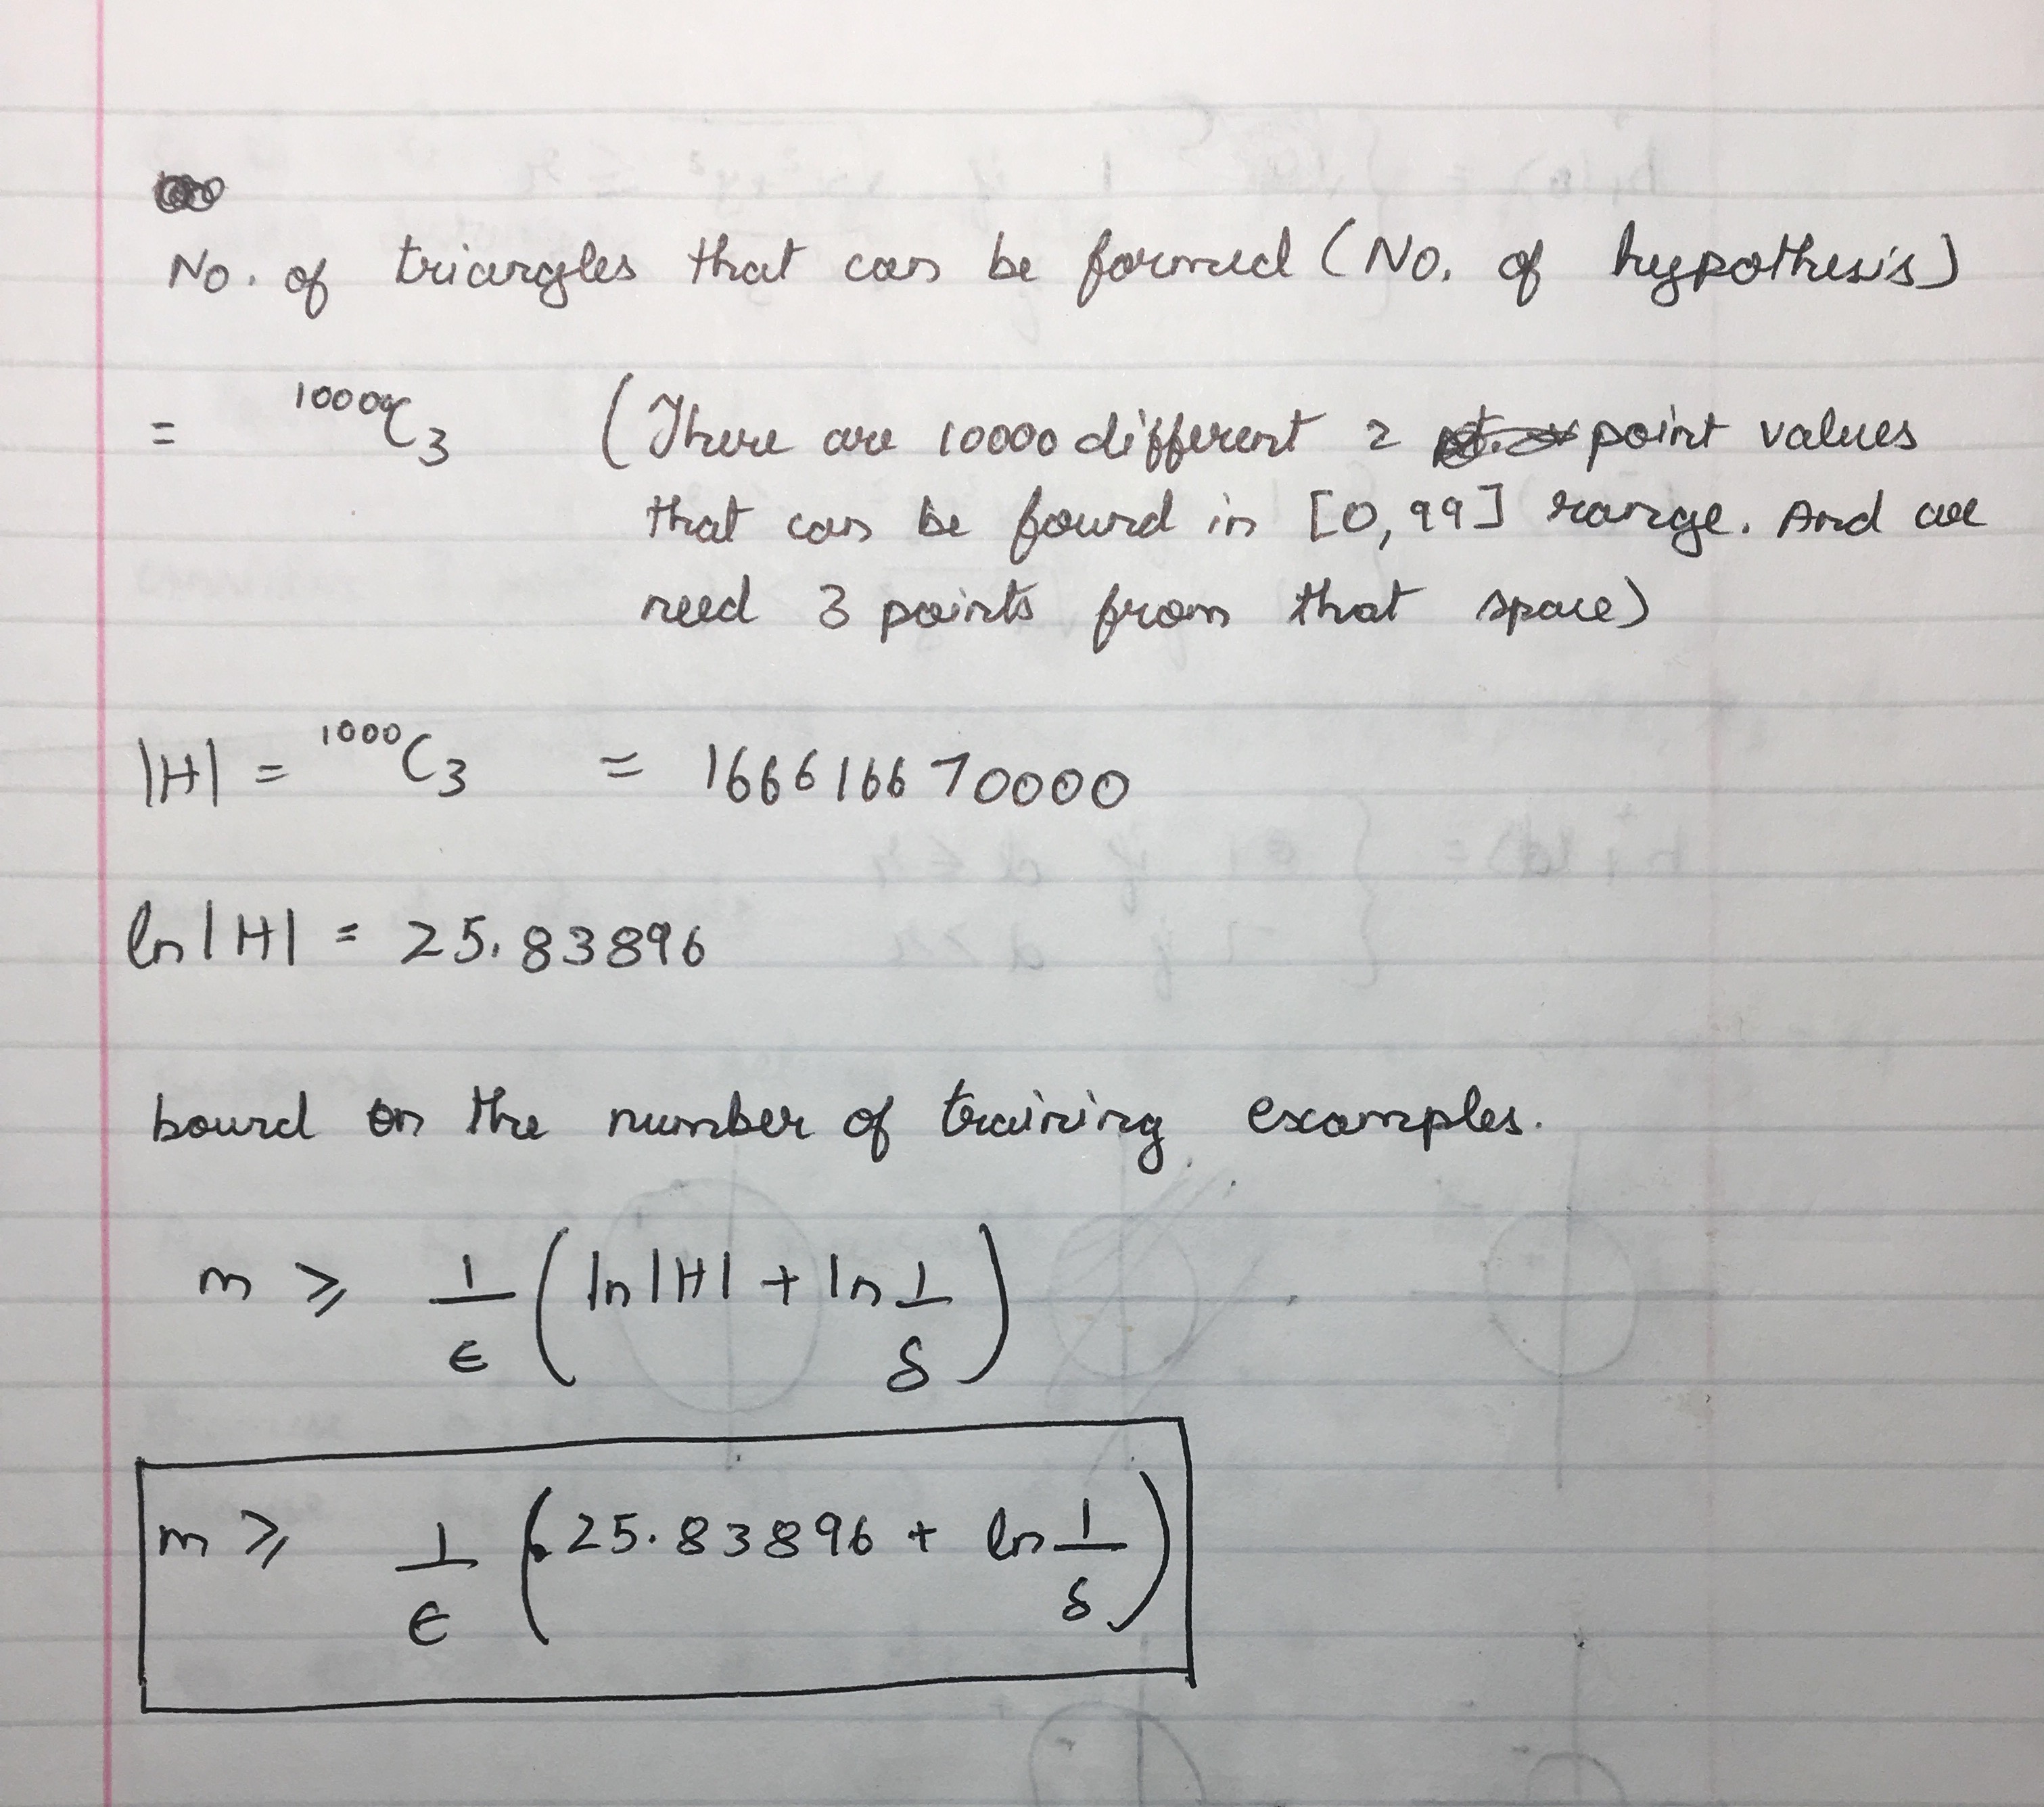 No. of triangles that can be formed (No. of hypothesis)
= ¹⁰⁰⁰⁰C₃ (There are 10000 different 2 point values
that can be found in [0,99] range. And we
need 3 points from that space)
|H| = ¹⁰⁰⁰C₃ = 166616670000
ln|H| = 25.83896
bound on the number of training examples.
m ⩾ 1/ϵ (ln|H| + ln 1/δ)
m ⩾ 1/ϵ (25.83896 + ln 1/δ)